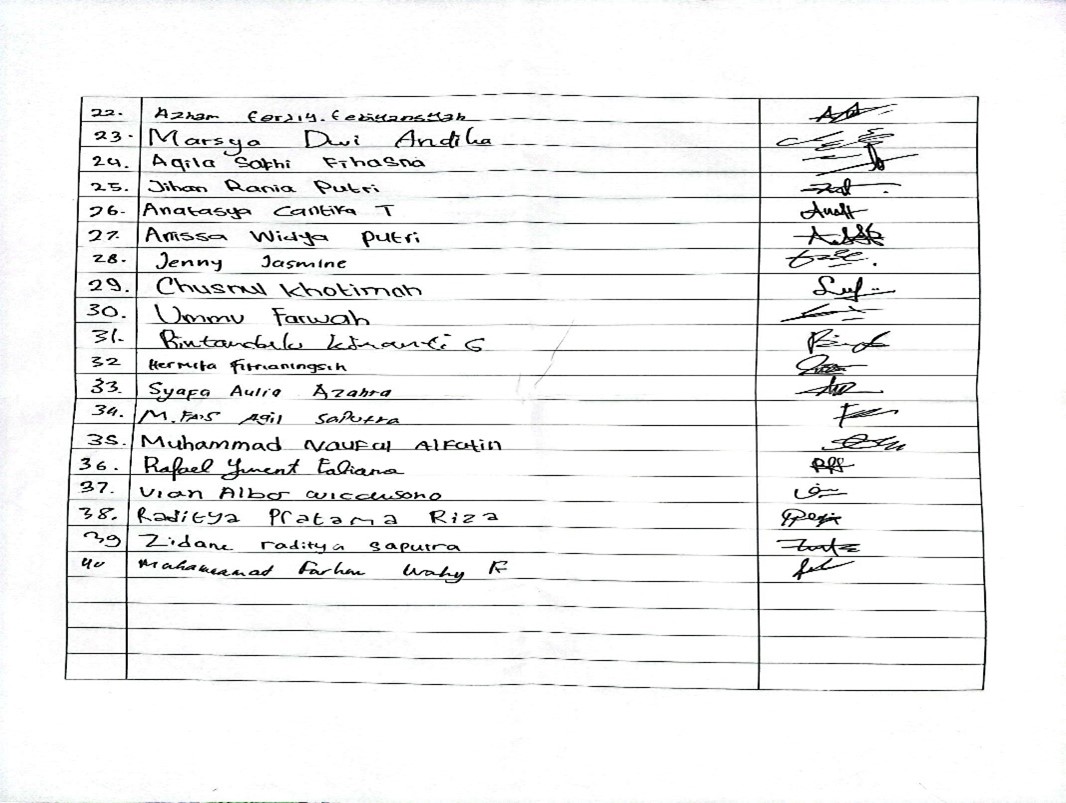 22. Azham
23. Marsya Dwi Andika
24. Aqila Sakhi Fihasna
25. Jihan Rania Putri
26. Anatasya Cantika T
27. Anissa Widya Putri
28. Jenny Jasmine
29. Chusnul Khotimah
30. Ummu Farwah
31. Kinanti G
32 Hermita Fitrianingsih
33. Syafa Aulia Azahra
34. M. FAIS Agil Saputra
35. Muhammad Naufal Alfatin
36. Rafael Faliana
37. Vian Albo
38. Raditya Pratama Riza
39 Zidane raditya saputra
40 Muhammad Farhan Wahy F